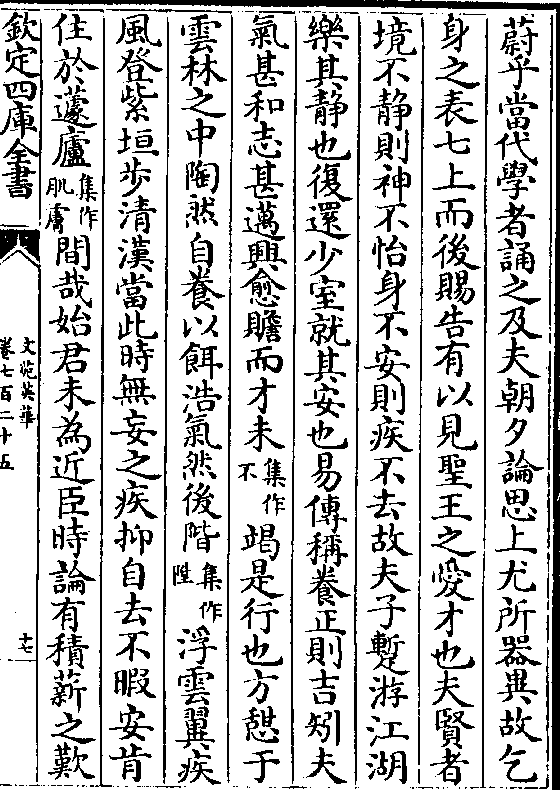 蔚乎當代學者誦之及夫朝夕論思上尤所器異故乞
身之表七上而後賜告有以見聖王之愛才也夫賢者
境不静則神不怡身不安則疾不去故夫子蹔游江湖
樂其静也復還少室就其安也易傳稱養正則吉矧夫
氣甚和志甚邁興愈贍而才未集作不竭是行也方憇于
雲林之中陶然自養以餌浩氣然後階集作陞浮雲翼疾
風登紫垣歩清漢當此時無妄之疾抑自去不暇安肯
住於蘧廬集作肌膚間哉始君未為近臣時論有積薪之歎
欽定四庫全書
文苑英華
卷七百二十五
十七